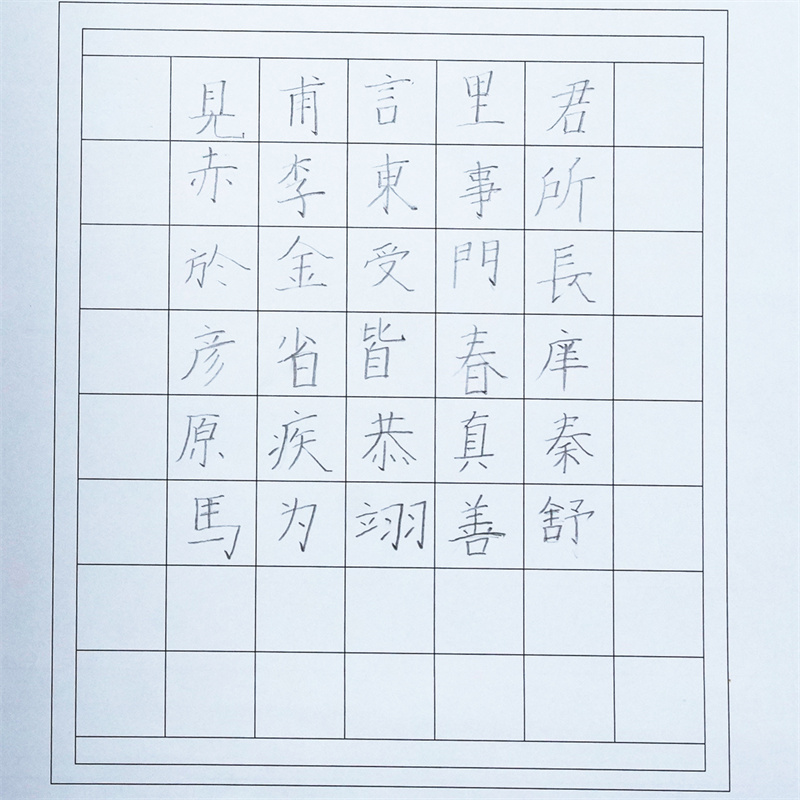 見甫言里君
赤李東事所
於金受門長
彦省皆春庠
原疾恭真秦
馬为翊善舒